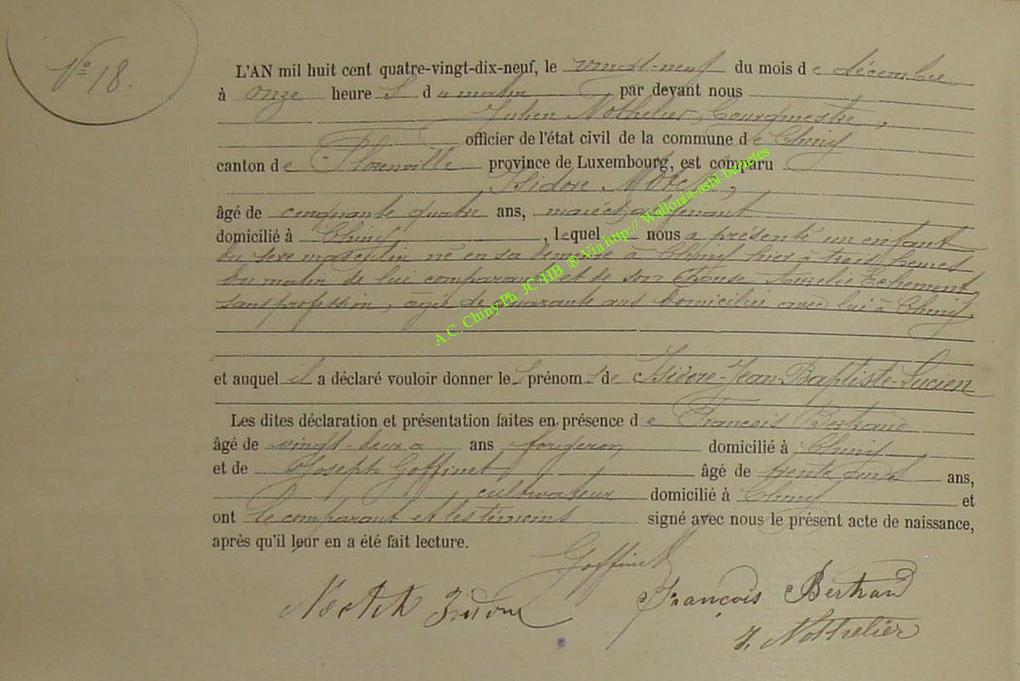 Nº 18.
L'AN mil huit cent quatre-vingt-dix-neuf, le vingt-neuf du mois de décembre
à onze heures du matin par devant nous
Julien Nothelier, bourgmestre,
officier de l'état civil de la commune de Chiny
canton de Florenville province de Luxembourg, est comparu
Isidore
âgé de cinquante quatre ans, maréchal ferrant
domicilié à Chiny, lequel nous a présenté un enfant
du sexe masculin né en sa demeure à Chiny hier à trois heures
du matin de lui comparant et de son épouse Aurélie Echement
sans profession, âgée de quarante ans domiciliée avec lui à Chiny,
et auquel il a déclaré vouloir donner les prénoms de Isidore-Jean-Baptiste-Lucien
Les dites déclaration et présentation faites en présence de François Bertrand
âgé de vingt-deux ans forgeron domicilié à Chiny
et de Joseph Goffinet âgé de trente ans,
cultivateur domicilié à Chiny et
ont le comparant et les témoins signé avec nous le présent acte de naissance,
après qu'il leur en a été fait lecture.
Goffinet
François Bertrand
J. Nothelier
A.C. Chiny-Ph. JC /HB ® Via http:// Wallonia-asbl